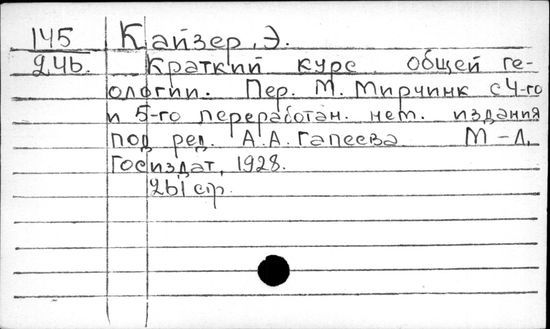 145 Кайзер, Э.
246. Краткий курс общей ге-
ологии. Пер. М. Мирчинк с 4-го
и 5-го переработан. нем. издания
под ред. А.А. Гапеева М-Л,
Госиздат, 1928.
261 стр.